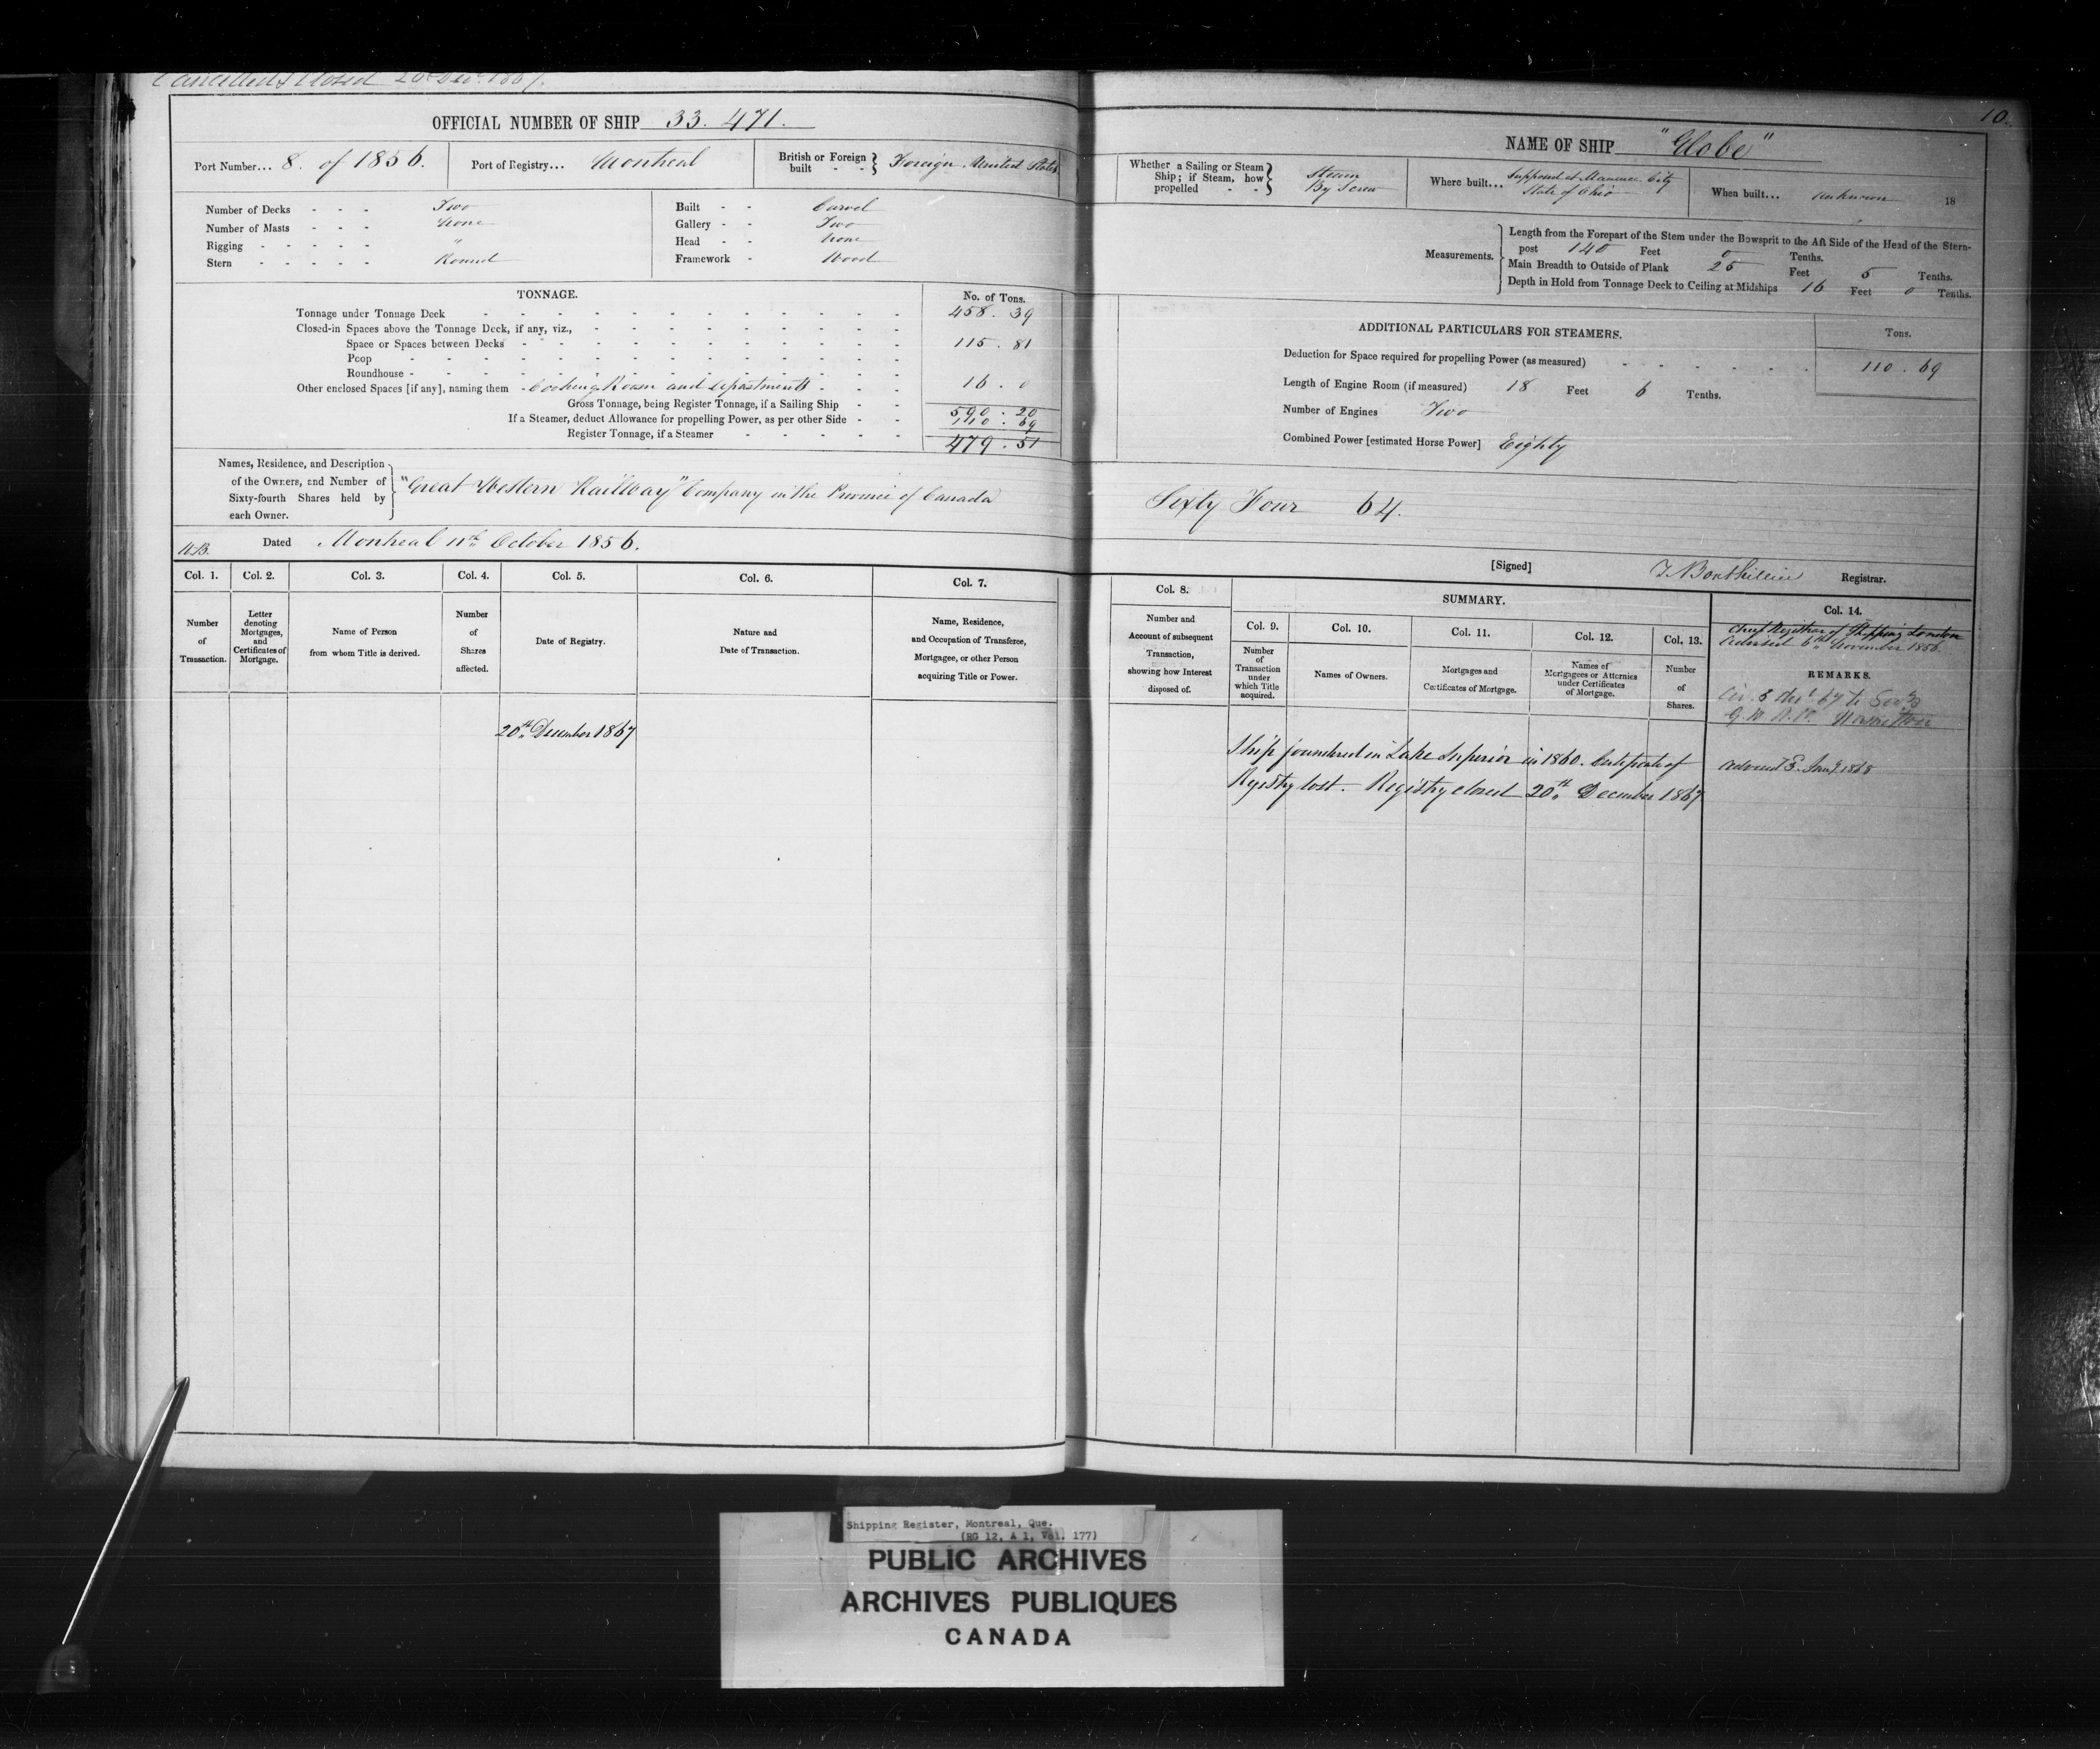 Cancelled & Closed 20 Decr. 1867.
10.
OFFICIAL NUMBER OF SHIP 33.471.
NAME OF SHIP "Globe"
Port Number... 8. of 1856.
Port of Registry... Montreal
British or Foreign built - - } Foreign United States
Whether a Sailing or Steam Ship; if Steam, how propelled - - } Steam By Screw
Where built... Supposed at Maumee City State of Ohio
When built... unknown 18
Number of Decks - - - Two
Number of Masts - - - None
Rigging - - - - - "
Stern - - - - - Round
Built - - Carvel
Gallery - - Two
Head - - None
Framework - Wood
Measurements. { Length from the Forepart of the Stem under the Bowsprit to the Aft Side of the Head of the Stern-
post 140 Feet 0 Tenths.
Main Breadth to Outside of Plank 25 Feet 5 Tenths.
Depth in Hold from Tonnage Deck to Ceiling at Midships 16 Feet 0 Tenths.
TONNAGE.
No. of Tons.
Tonnage under Tonnage Deck 458.39
Closed-in Spaces above the Tonnage Deck, if any, viz.,
Space or Spaces between Decks 115.81
Poop
Roundhouse
Other enclosed Spaces [if any], naming them - Cooking Room and departments 16.0
Gross Tonnage, being Register Tonnage, if a Sailing Ship 590:20
If a Steamer, deduct Allowance for propelling Power, as per other Side 110:69
Register Tonnage, if a Steamer 479.51
ADDITIONAL PARTICULARS FOR STEAMERS.
Tons.
Deduction for Space required for propelling Power (as measured) 110.69
Length of Engine Room (if measured) 18 Feet 6 Tenths.
Number of Engines Two
Combined Power [estimated Horse Power] Eighty
Names, Residence, and Description
of the Owners, and Number of
Sixty-fourth Shares held by
each Owner.
"Great Western Railway" Company in the Province of Canada
Sixty Four 64.
Dated Montreal 11th October 1856.
[Signed] Registrar.
Col. 1.
Number of Transaction.
Col. 2.
Letter denoting Mortgages, and Certificates of Mortgage.
Col. 3.
Name of Person from whom Title is derived.
Col. 4.
Number of Shares affected.
Col. 5.
Date of Registry.
Col. 6.
Nature and Date of Transaction.
Col. 7.
Name, Residence, and Occupation of Transferee, Mortgagee, or other Person acquiring Title or Power.
Col. 8.
Number and Account of subsequent Transaction, showing how Interest disposed of.
SUMMARY.
Col. 9.
Number of Transaction under which Title acquired.
Col. 10.
Names of Owners.
Col. 11.
Mortgages and Certificates of Mortgage.
Col. 12.
Names of Mortgagees or Attornies under Certificates of Mortgage.
Col. 13.
Number of Shares.
Col. 14.
Chief Registrar of Shipping London
advised 6th November 1856.
REMARKS.
20th December 1867
Ship foundered in Lake Superior in 1860. Certificate of
Registry lost. Registry closed 20th December 1867
advised 3. Jany 1868
Shipping Register, Montreal, Que.
(RG 12, A 1, Vol. 177)
PUBLIC ARCHIVES
ARCHIVES PUBLIQUES
CANADA